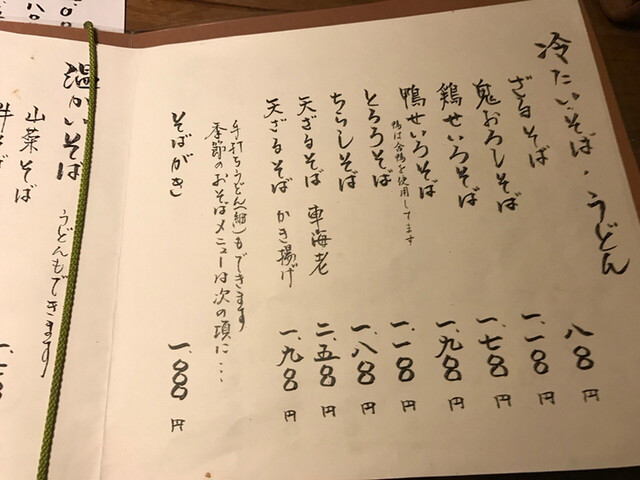 冷たいそば・うどん
ざるそば 八〇〇円
鬼おろしそば 一、一〇〇円
鶏せいろそば 一、七〇〇円
鴨せいろそば 一、九〇〇円
鴨は合鴨を使用してます
とろろそば 一、一〇〇円
ちらしそば 一、八〇〇円
天ざるそば 車海老 二、五〇〇円
天ざるそば かき揚げ 一、九〇〇円
手打ちうどん(細)もできます
季節のおそばメニューは次の項に・・・
そばがき 一、〇〇〇円
温かいそば うどんもできます
山菜そば